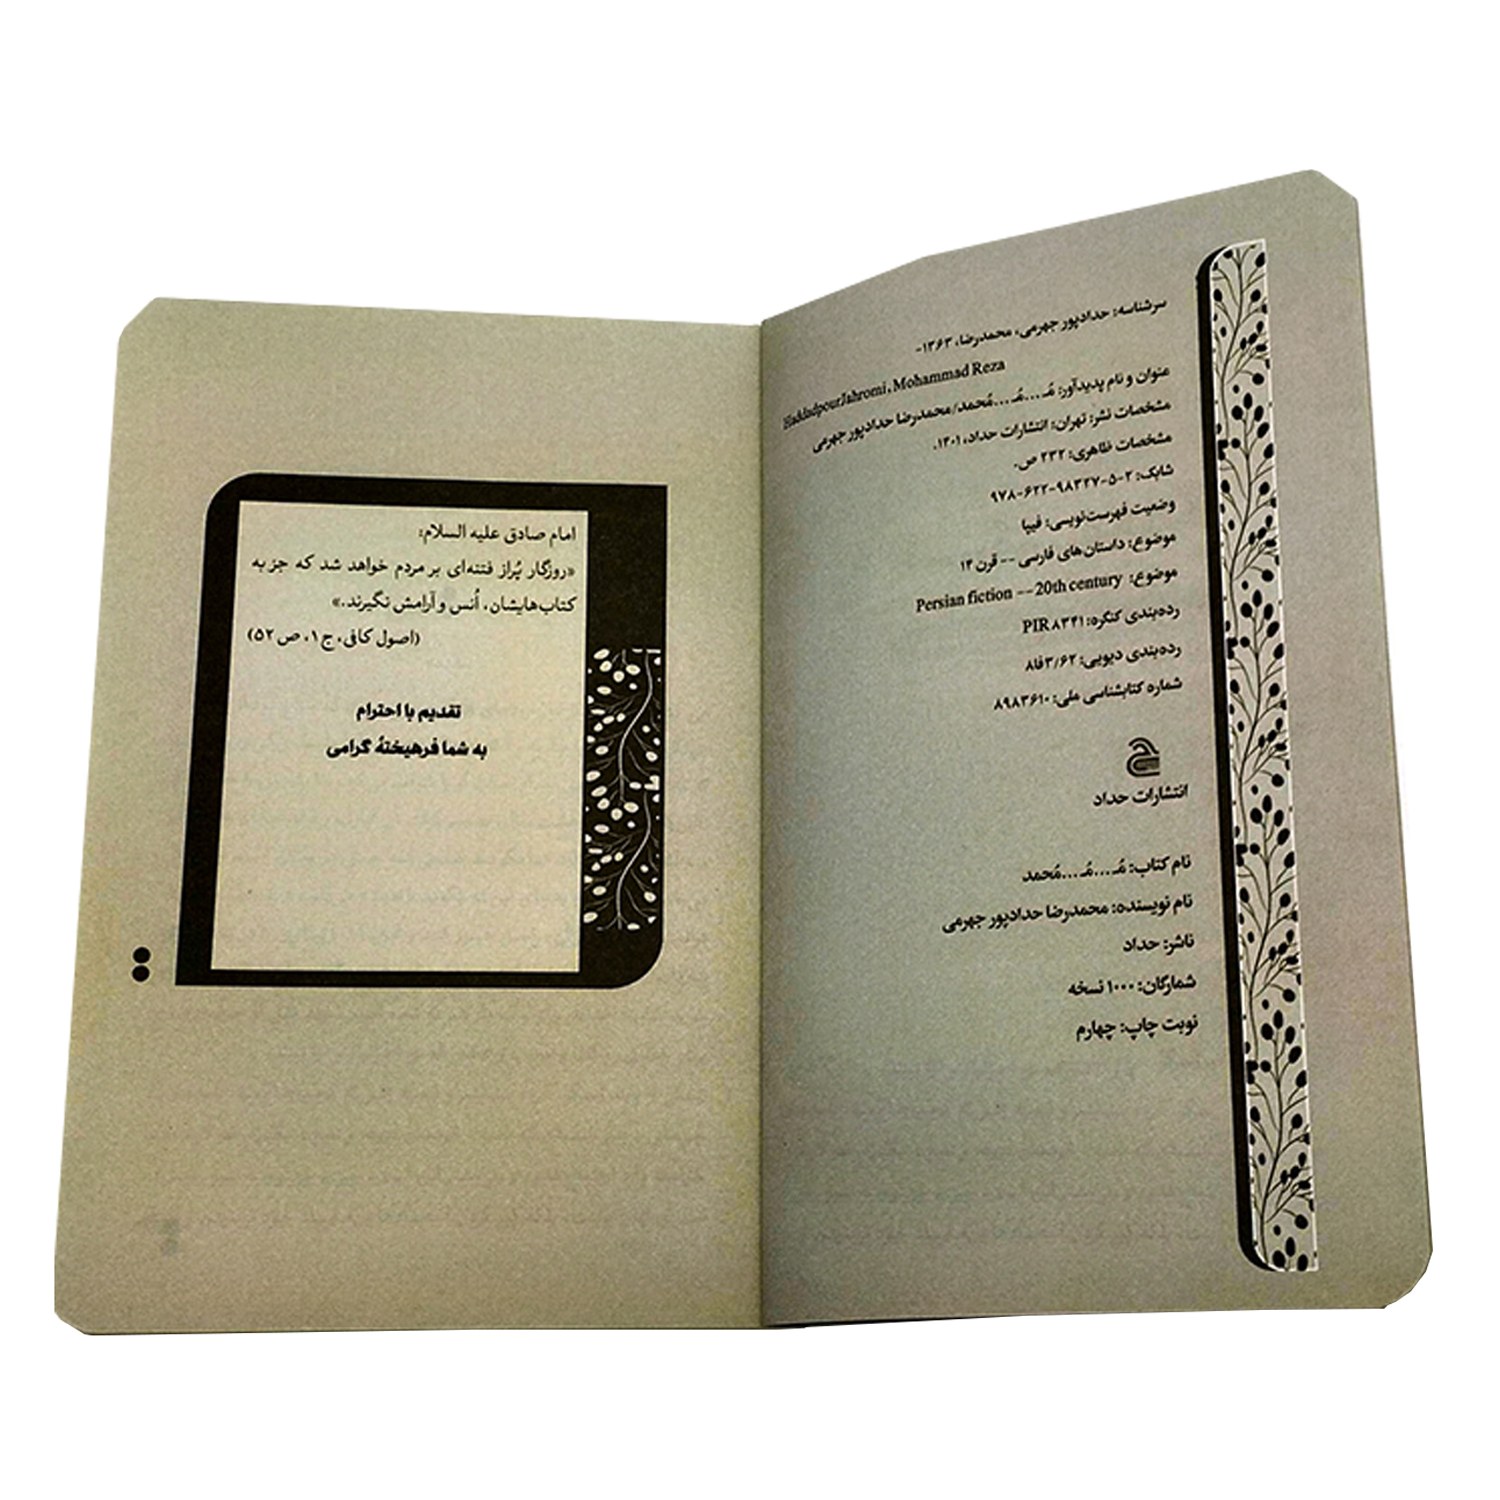 سرشناسه: حدادپور جهرمی، محمدرضا، ۱۳۶۳-
Haddadpour Jahromi, Mohammad Reza
عنوان و نام پدیدآور: مُـ....مُـ....مُحمد/محمدرضا حدادپور جهرمی
مشخصات نشر: تهران: انتشارات حداد، ۱۴۰۱.
مشخصات ظاهری: ۲۳۲ ص.
شابک: ۲-۵-۹۸۳۲۷-۶۲۲-۹۷۸
وضعیت فهرست‌نویسی: فیپا
موضوع: داستان‌های فارسی -- قرن ۱۴
موضوع: Persian fiction -- 20th century
رده‌بندی کنگره: PIR۸۳۴۱
رده‌بندی دیویی: ۳/۶۲فا۸
شماره کتابشناسی ملی: ۸۹۸۳۶۱۰
انتشارات حداد
نام کتاب: مُـ....مُـ....مُحمد
نام نویسنده: محمدرضا حدادپور جهرمی
ناشر: حداد
شمارگان: ۱۰۰۰ نسخه
نوبت چاپ: چهارم
امام صادق علیه السلام:
«روزگار پُر از فتنه‌ای بر مردم خواهد شد که جز به
کتاب‌هایشان، اُنس و آرامش نگیرند.»
(اصول کافی، ج۱، ص۵۲)
تقدیم با احترام
به شما فرهیختهٔ گرامی